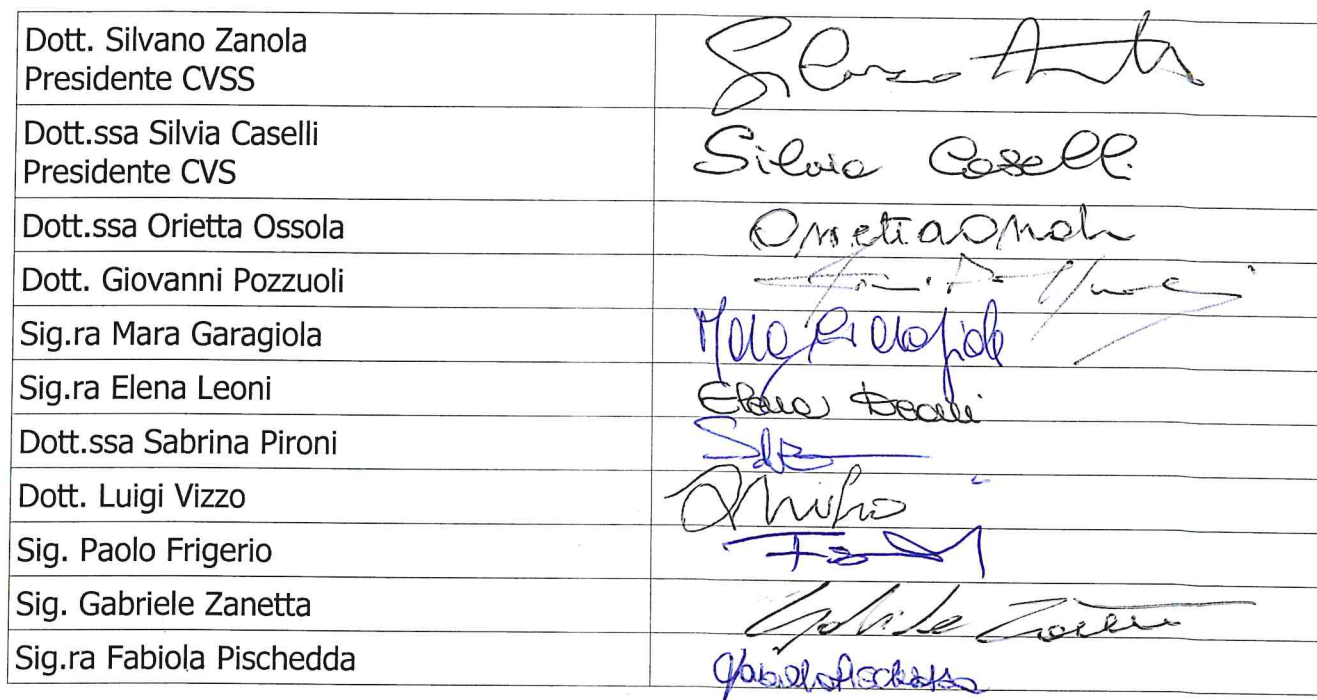 Dott. Silvano Zanola
Presidente CVSS
Dott.ssa Silvia Caselli
Presidente CVS
Silvia Caselli
Dott.ssa Orietta Ossola
Dott. Giovanni Pozzuoli
Sig.ra Mara Garagiola
Mara Garagiola
Sig.ra Elena Leoni
Elena Leoni
Dott.ssa Sabrina Pironi
Dott. Luigi Vizzo
Sig. Paolo Frigerio
Sig. Gabriele Zanetta
Sig.ra Fabiola Pischedda